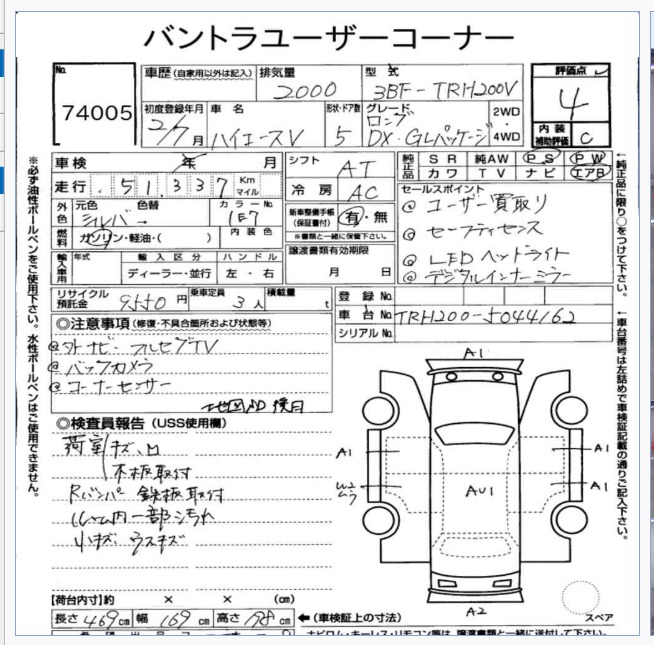 バントラユーザーコーナー
No.
74005
車歴(自家用以外は記入)
排気量 2000
型式 3BF-TRH200V
評価点
4
内装補助評価 C
初度登録年月 2/7月
車名 ハイエースV
形状・ドア数 5
グレード ロング DX・GLパッケージ
2WD・4WD
車検 年 月
シフト AT
純正品 SR 純AW PS PW
カワ TV ナビ エアB
走行 51,337 Km マイル
冷房 AC
セールスポイント
@ ユーザー買取り
@ セーフティセンス
@ LEDヘッドライト
@ デジタルインナーミラー
外色 元色 シルバー 色替 カラーNo. 1E7
新車整備手帳(保証書付) 有・無
※書類と一緒に保管下さい。
燃料 ガソリン・軽油・( ) 内装色
輸入車用 年式 輸入区分 ハンドル
ディーラー・並行 左・右
譲渡書類有効期限
月 日
リサイクル預託金 9550円
乗車定員 3人
積載量 t
登録No.
車台No. TRH200-5044162
シリアルNo.
◎注意事項(修復・不具合箇所および状態等)
@外ナビ・フルセグTV
@バックカメラ
@コーナーセンサー
地図SD後日
◎検査員報告(USS使用欄)
荷室キズ、凹
木板取付
Rバンパー鉄板取付
ルーム内一部汚れ
小キズ ウスキズ
【荷台内寸】約 × × (cm)
長さ 469cm 幅 169cm 高さ 198cm ←(車検証上の寸法)
A1
A1
A1
A1
AU1
A2
スペア
※必ず油性ボールペンをご使用下さい。水性ボールペンはご使用できません。
←純正品に限り○をつけて下さい。
←車台番号は左詰めで車検証記載の通りご記入下さい。